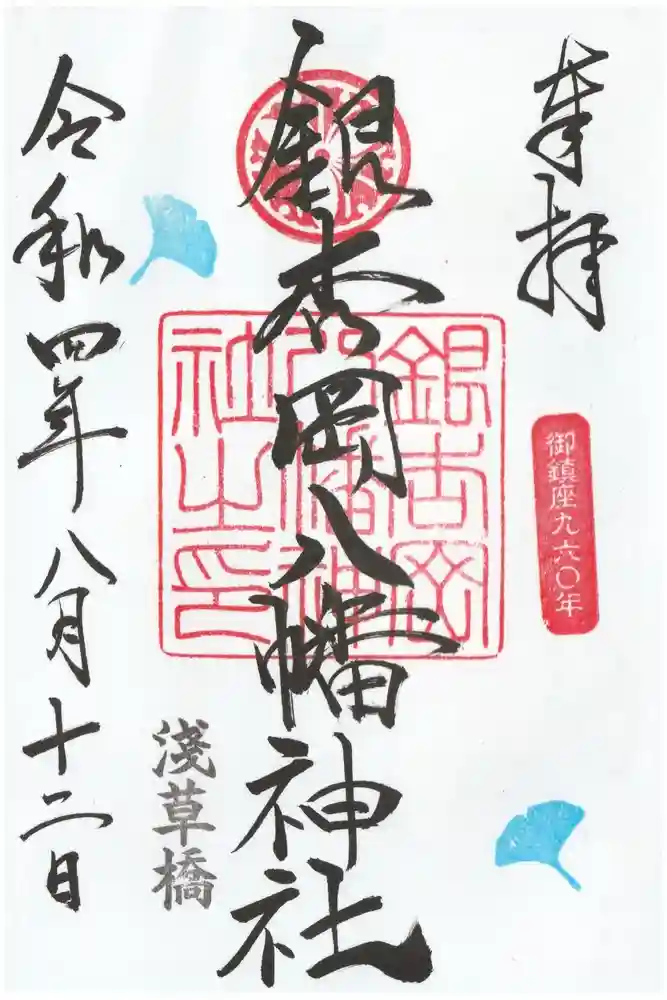 奉拝
御鎮座九六〇年
銀杏岡八幡神社
銀杏岡
八幡神
社之印
淺草橋
令和四年八月十二日